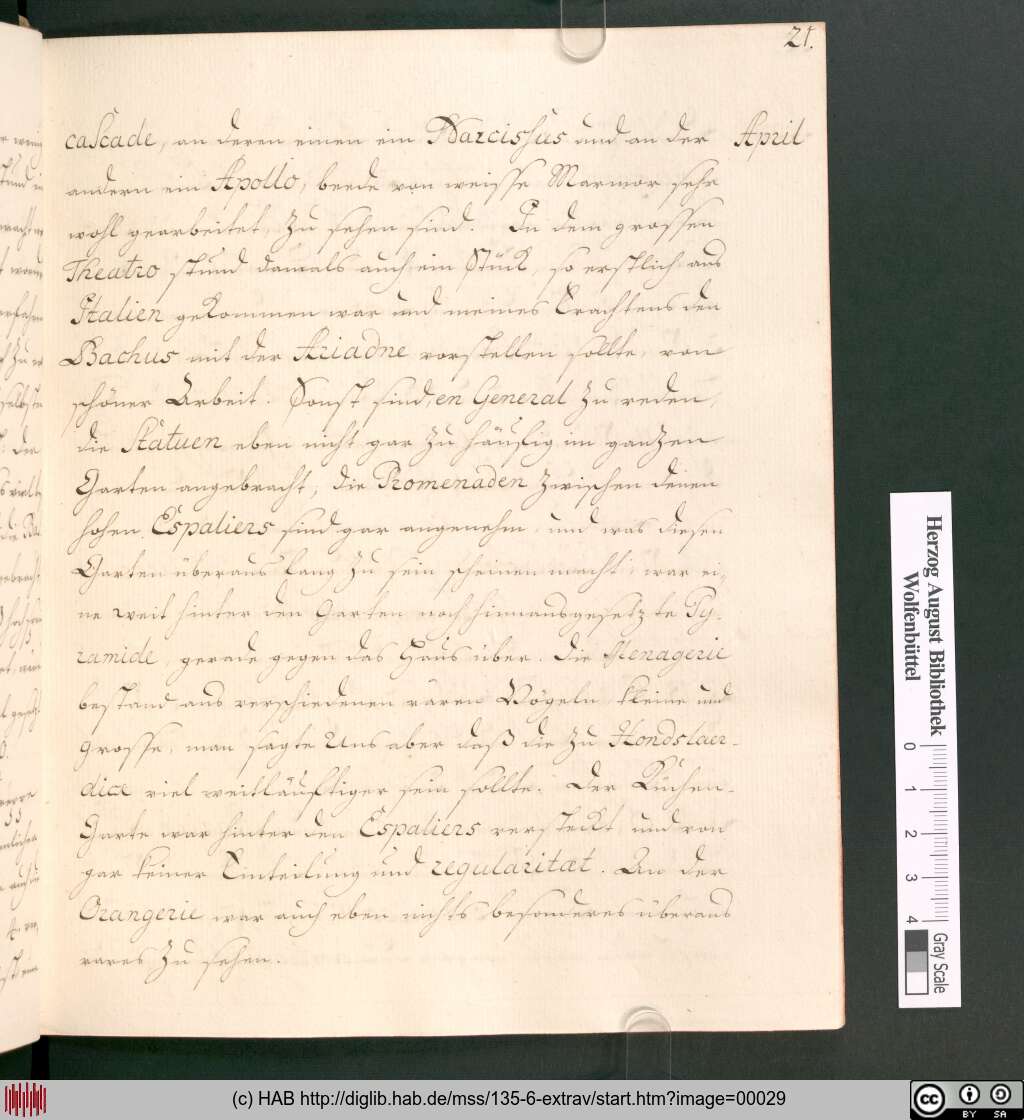 21.
April
cascade, an deren einen ein Narcissus und an der
andern ein Apollo, beede von weisse Marmor sehr
wohl gearbeitet, zu sehen sind. In dem grossen
Theatro stund damals auch ein Stück, so erstlich aus
Italien gekommen war und meines Erachtens den
Bachus mit der Ariadne vorstellen sollte, von
schöner Arbeit. Sonst sind, en General zu reden,
die Statuen eben nicht gar zu häufig im ganzen
Garten angebracht, die Promenaden zwischen denen
hohen Espaliers sind gar angenehm, und was diesen
Garten überaus lang zu sein scheinen macht, war ei-
ne weit hinter den Garten noch hinausgesetzte Py-
ramide, gerade gegen das Haus über. Die Menagerie
bestand aus verschiedenen raren Vögeln, kleine und
grosse, man sagte Uns aber daß die zu Hondslaer-
dicx viel weitläufftiger sein sollte. Der Küchen-
Garte war hinter den Espaliers versteckt und von
gar keiner Einteilung und regularitæt. An der
Orangerie war auch eben nichts besonderes überaus
rares zu sehen.
Herzog August Bibliothek
Wolfenbüttel
0 1 2 3 4
Gray Scale
(c) HAB http://diglib.hab.de/mss/135-6-extrav/start.htm?image=00029
cc BY SA